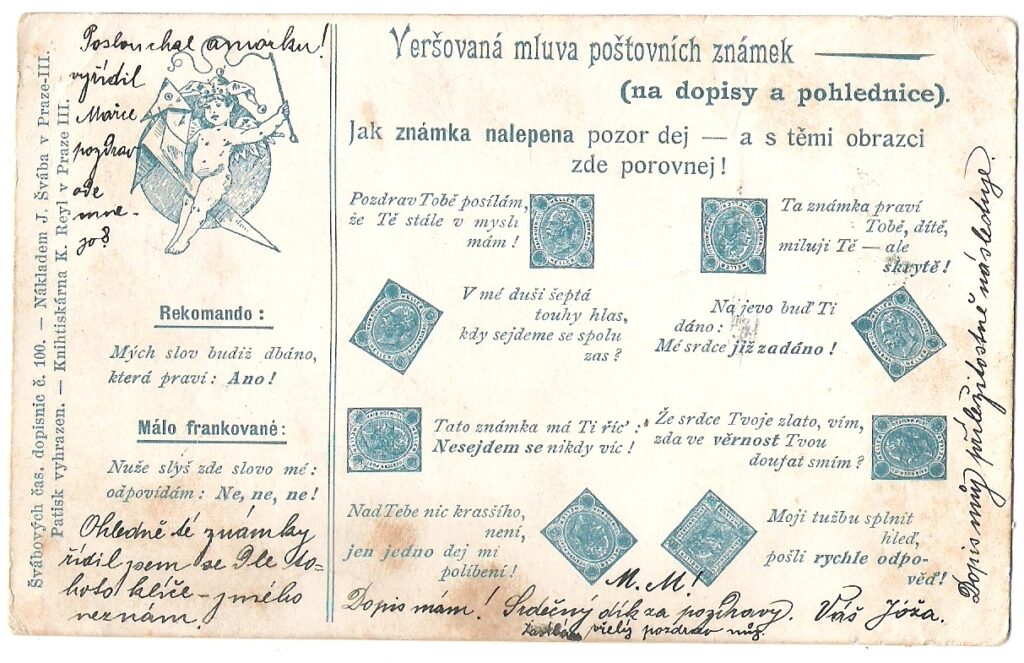 Švábových čas. dopisnic č. 100. — Nákladem J. Švába v Praze-III.
Patisk vyhrazen. — Knihtiskárna K. Reyl v Praze III.
Poslouchal amorku!
vyřídil
Mařce
pozdrav
ode
mne -
jo?
Rekomando :
Mých slov budiž dbáno,
která praví: Ano!
Málo frankované:
Nuže slyš zde slovo mé:
odpovídám: Ne, ne, ne!
Ohledně té známky
řídil jsem se Dle to-
hoto klíče - jiného
neznám.
Veršovaná mluva poštovních známek
(na dopisy a pohlednice).
Jak známka nalepena pozor dej — a s těmi obrazci
zde porovnej!
Pozdrav Tobě posílám,
že Tě stále v mysli
mám!
Ta známka praví
Tobě, dítě,
miluji Tě — ale
skrytě!
V mé duši šeptá
touhy hlas,
kdy sejdeme se spolu
zas?
Na jevo buď Ti
dáno:
Mé srdce již zadáno!
Tato známka má Ti říc':
Nesejdem se nikdy víc!
Že srdce Tvoje zlato, vím,
zda ve věrnost Tvou
doufat smím?
Nad Tebe nic krassího,
není,
jen jedno dej mi
políbení!
Moji tužbu splnit
hleď,
pošli rychle odpo-
věď!
M. M!
Dopis mám! Srdečný dík za pozdravy. Váš Jóža.
vřelý pozdrav můj.
Dopis můj příležitostně následuje.